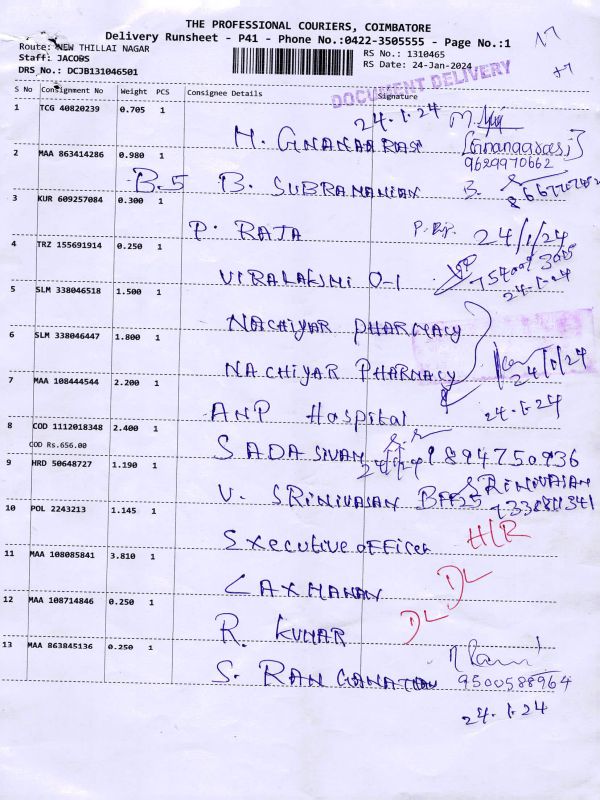 THE PROFESSIONAL COURIERS, COIMBATORE
Delivery Runsheet - P41 - Phone No.:0422-3505555 - Page No.:1
Route: NEW THILLAI NAGAR
RS No.: 1310465
Staff: JACOBS
RS Date: 24-Jan-2024
DRS No.: DCJB131046501
DOCUMENT DELIVERY
S No Consignment No Weight PCS Consignee Details Signature
24.1.24
1 TCG 40820239 0.705 1
9629970662
2 MAA 863414286 0.980 1
B-5 B. SUBRAMANIAN B.
3 KUR 609257084 0.300 1
P. RAJA 24/1/24
4 TRZ 155691914 0.250 1
24.1.24
5 SLM 338046518 1.500 1
NACHIYAR PHARMACY
6 SLM 338046447 1.800 1
NACHIYAR PHARMACY 24/1/24
7 MAA 108444544 2.200 1
24.1.24
ANP Hospital
8 COD 1112018348 2.400 1
COD Rs.656.00
SADA SIVAN 9894750936
9 HRD 50648727 1.190 1
SRINIVASAN
V. SRINIVASAN
10 POL 2243213 1.145 1
Executive officer
11 MAA 108085841 3.810 1
LAXMANAN DL
12 MAA 108714846 0.250 1
R. KUMAR DL
13 MAA 863845136 0.250 1
S. RANGANATHAN 9500588964
24.1.24